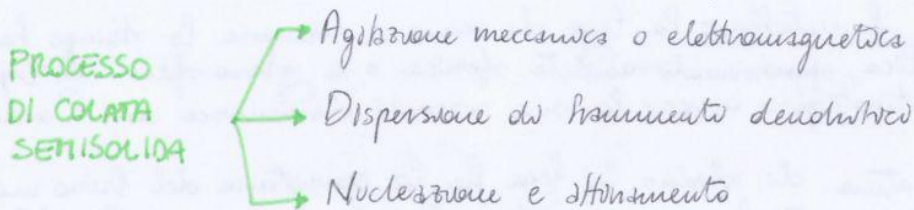 PROCESSO
DI COLATA
SEMISOLIDA
Agitazione meccanica o elettromagnetica
Dispersione di frammenti dendritici
Nucleazione e affinamento